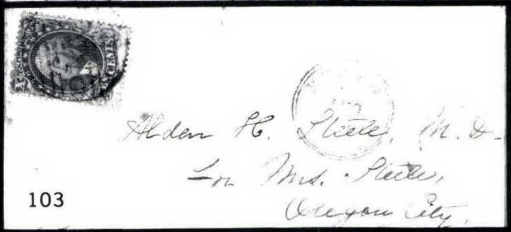 Alden H. Steele, M.D.
For Mrs. Steele,
Oregon City,
103